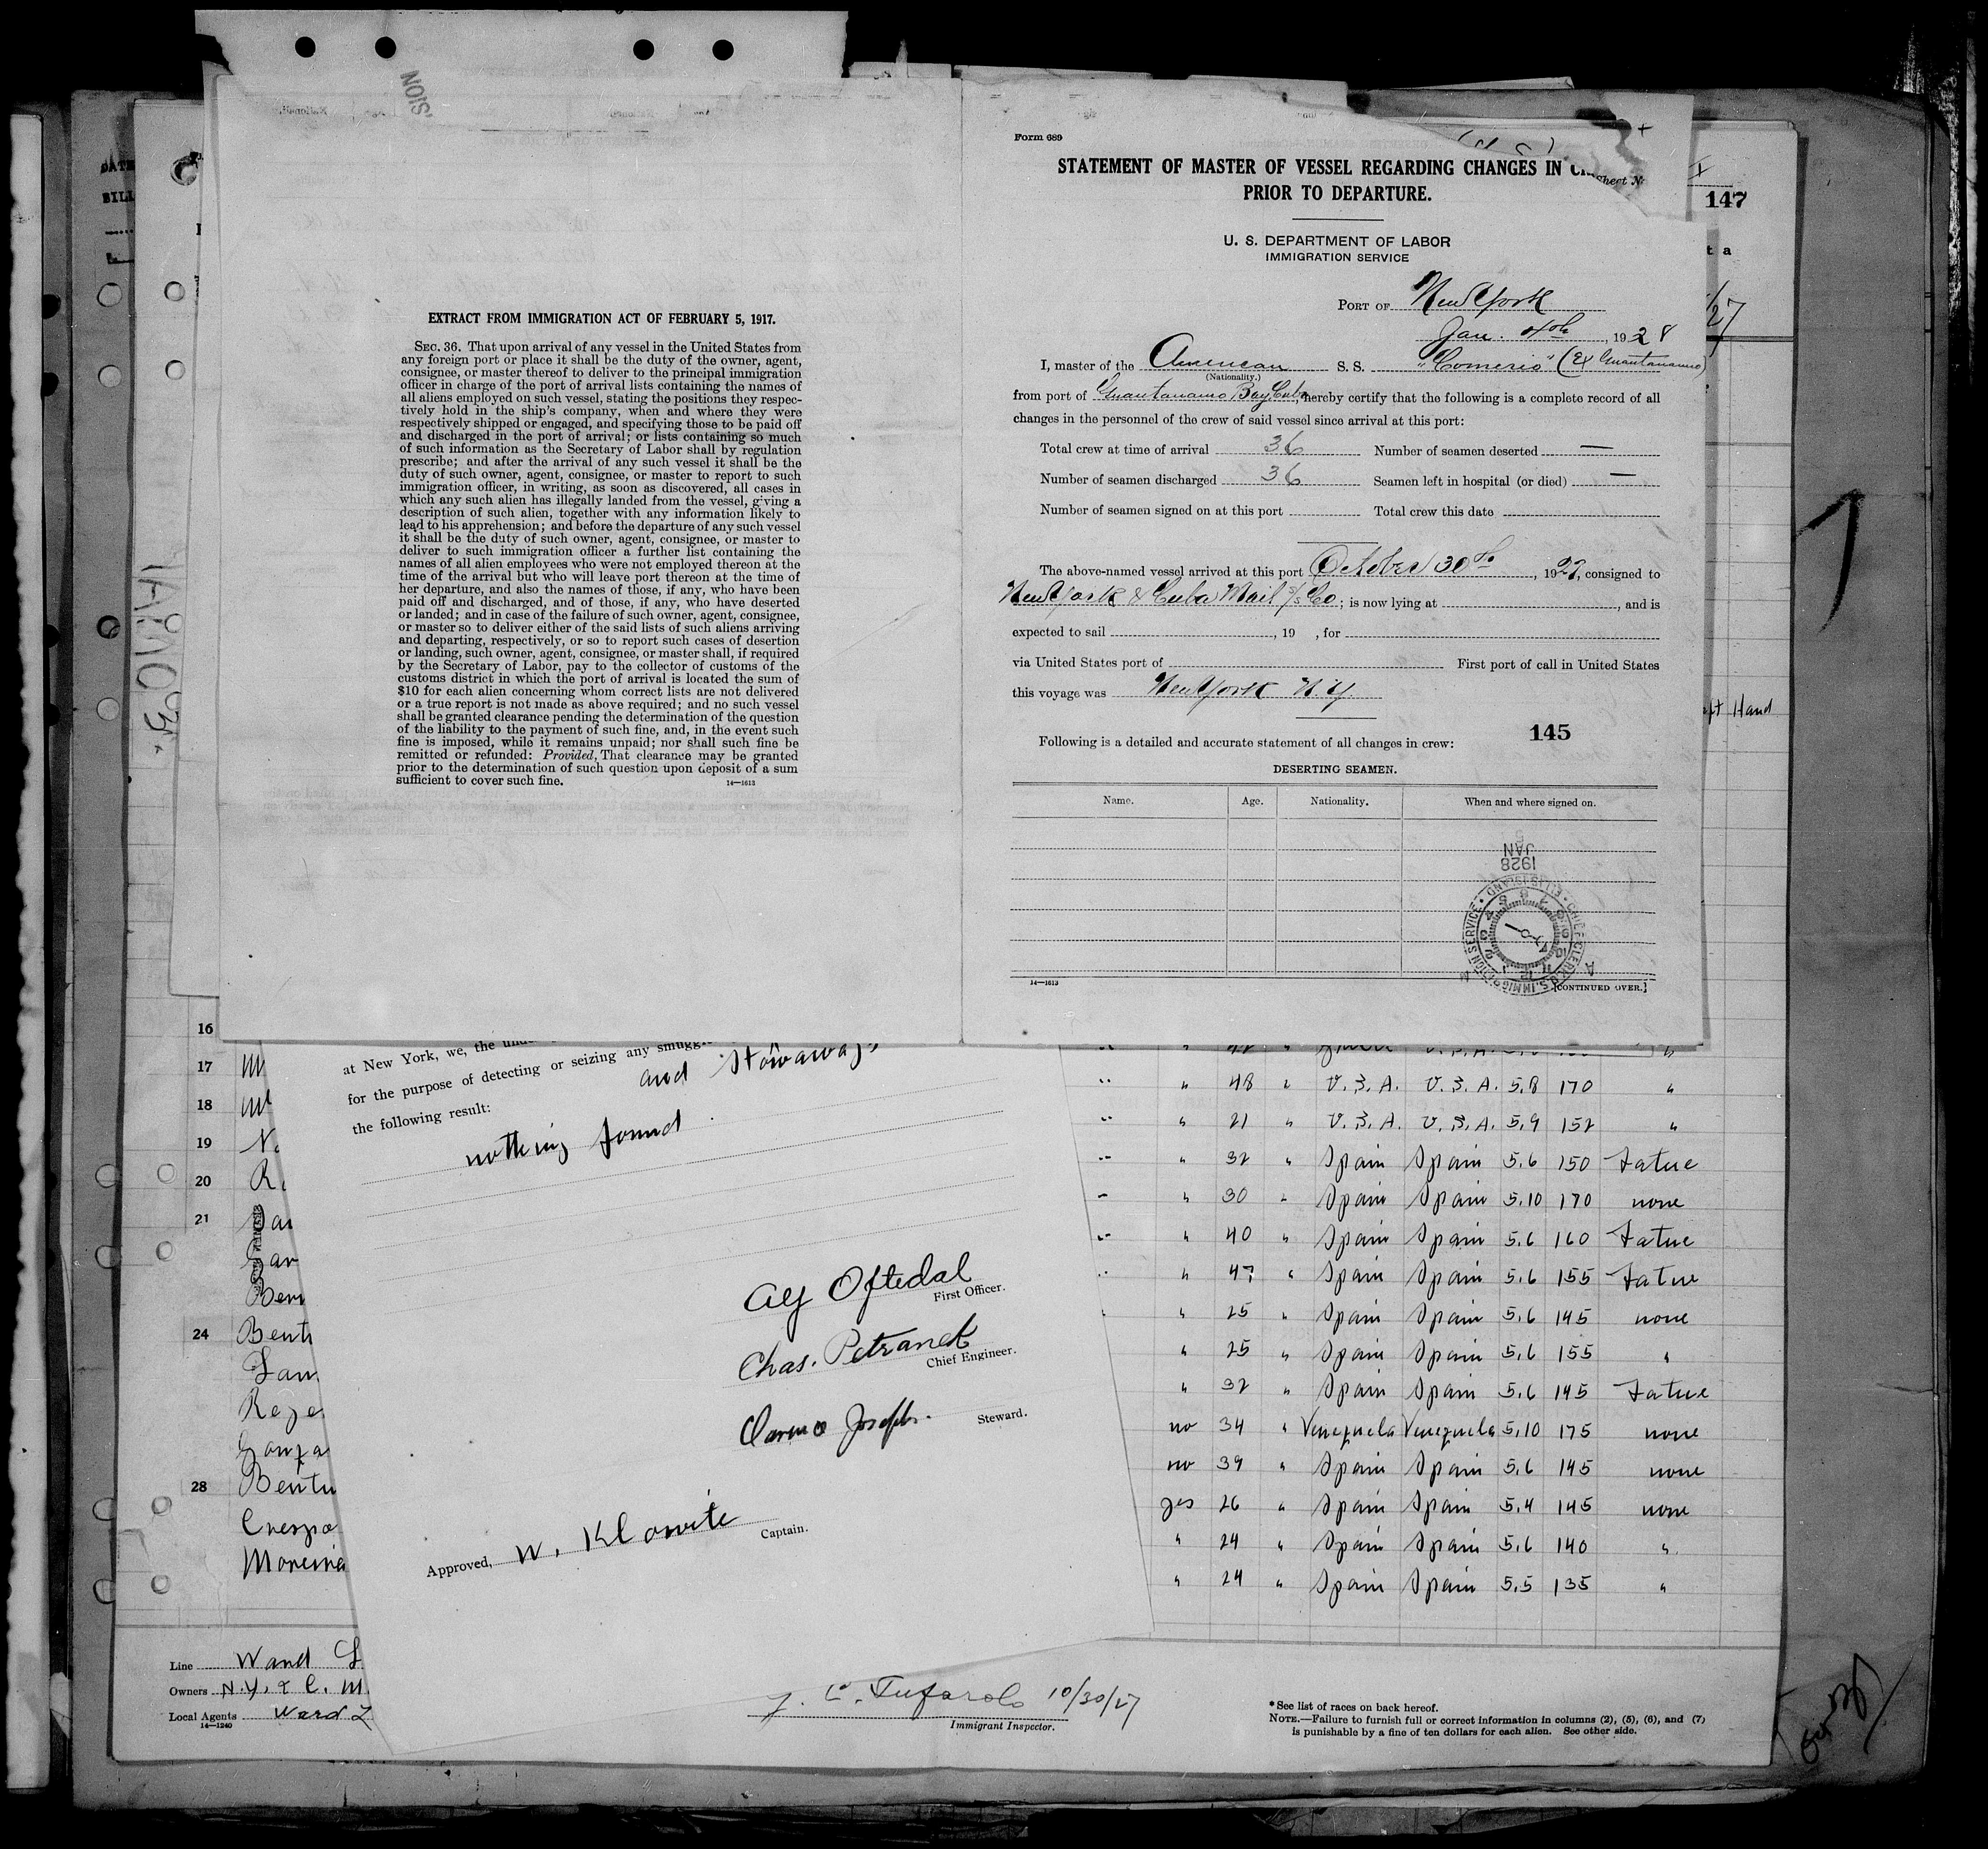 EXTRACT FROM IMMIGRATION ACT OF FEBRUARY 5, 1917.
SEC. 36. That upon arrival of any vessel in the United States from
any foreign port or place it shall be the duty of the owner, agent,
consignee, or master thereof to deliver to the principal immigration
officer in charge of the port of arrival lists containing the names of
all aliens employed on such vessel, stating the positions they respec-
tively hold in the ship's company, when and where they were
respectively shipped or engaged, and specifying those to be paid off
and discharged in the port of arrival; or lists containing so much
of such information as the Secretary of Labor shall by regulation
prescribe; and after the arrival of any such vessel it shall be the
duty of such owner, agent, consignee, or master to report to such
immigration officer, in writing, as soon as discovered, all cases in
which any such alien has illegally landed from the vessel, giving a
description of such alien, together with any information likely to
lead to his apprehension; and before the departure of any such vessel
it shall be the duty of such owner, agent, consignee, or master to
deliver to such immigration officer a further list containing the
names of all alien employees who were not employed thereon at the
time of the arrival but who will leave port thereon at the time of
her departure, and also the names of those, if any, who have been
paid off and discharged, and of those, if any, who have deserted
or landed; and in case of the failure of such owner, agent, consignee,
or master so to deliver either of the said lists of such aliens arriving
and departing, respectively, or so to report such cases of desertion
or landing, such owner, agent, consignee, or master shall, if required
by the Secretary of Labor, pay to the collector of customs of the
customs district in which the port of arrival is located the sum of
$10 for each alien concerning whom correct lists are not delivered
or a true report is not made as above required; and no such vessel
shall be granted clearance pending the determination of the question
of the liability to the payment of such fine, and, in the event such
fine is imposed, while it remains unpaid; nor shall such fine be
remitted or refunded: Provided, That clearance may be granted
prior to the determination of such question upon deposit of a sum
sufficient to cover such fine.
14—1613
Form 689
STATEMENT OF MASTER OF VESSEL REGARDING CHANGES IN
PRIOR TO DEPARTURE.
U. S. DEPARTMENT OF LABOR
IMMIGRATION SERVICE
PORT OF New York
Jan. 4th, 1928
I, master of the American S. S. "Comerio" (Ex Guantanamo)
(Nationality.)
from port of Guantanamo Bay Cuba, hereby certify that the following is a complete record of all
changes in the personnel of the crew of said vessel since arrival at this port:
Total crew at time of arrival 36 Number of seamen deserted —
Number of seamen discharged 36 Seamen left in hospital (or died) —
Number of seamen signed on at this port Total crew this date
The above-named vessel arrived at this port October 30th, 1927, consigned to
New York & Cuba Mail S/S Co; is now lying at , and is
expected to sail , 19 , for
via United States port of First port of call in United States
this voyage was New York N.Y.
145
Following is a detailed and accurate statement of all changes in crew:
DESERTING SEAMEN.
Name. Age. Nationality. When and where signed on.
1928
JAN
5
14—1613
[CONTINUED OVER.]
Sheet
147
27
Hand
at New York, we, the
for the purpose of detecting or seizing any
and stowaways
the following result:
nothing found
Oftedal
First Officer.
Chas. Petranek
Chief Engineer.
Clarence Joseph.
Steward.
Approved, W. Klowite
Captain.
16
17
18
19
20
21
24 Bent
28 Bentu
" 48 " U.S.A. U.S.A. 5.8 170 "
" 21 " U.S.A. U.S.A. 5.9 152 "
" 32 " Spain Spain 5.6 150 Tatue
" 30 " Spain Spain 5.10 170 none
" 40 " Spain Spain 5.6 160 Tatue
" 47 " Spain Spain 5.6 155 Tatue
" 25 " Spain Spain 5.6 145 none
" 25 " Spain Spain 5.6 155 "
" 32 " Spain Spain 5.6 145 Tatue
no 34 " Venezuela Venezuela 5.10 175 none
no 39 " Spain Spain 5.6 145 none
yes 26 " Spain Spain 5.4 145 none
" 24 " Spain Spain 5.6 140 "
" 24 " Spain Spain 5.5 135 "
Line Ward
Owners N.Y. & C. M.
Local Agents Ward L
14—1240
Tufarolo 10/30/27
Immigrant Inspector.
*See list of races on back hereof.
NOTE.—Failure to furnish full or correct information in columns (2), (5), (6), and (7)
is punishable by a fine of ten dollars for each alien. See other side.